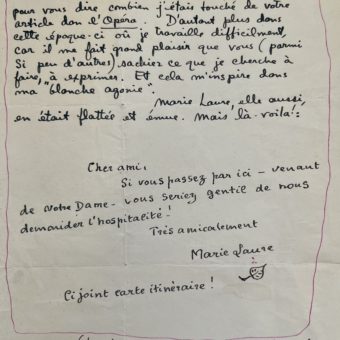 pour vous dire combien j'étais touché de votre
article dan l'Opéra. D'autant plus dans
cette époque-ci où je travaille difficilment,
car il me fait grand plaisir que vous (parmi
si peu d'autres) sachiez ce que je cherche à
faire, "à exprimer. Et cela m'inspire dans
ma "blanche agonie".
Marie Laure, elle aussi,
en était flattée et émue. Mais là-voilà!:
Cher ami.
Si vous passez par ici - venant
de Notre Dame - vous seriez gentil de nous
demander l'hospitalité!
Très amicalement
Marie Laure
Ci joint carte itinéraire!